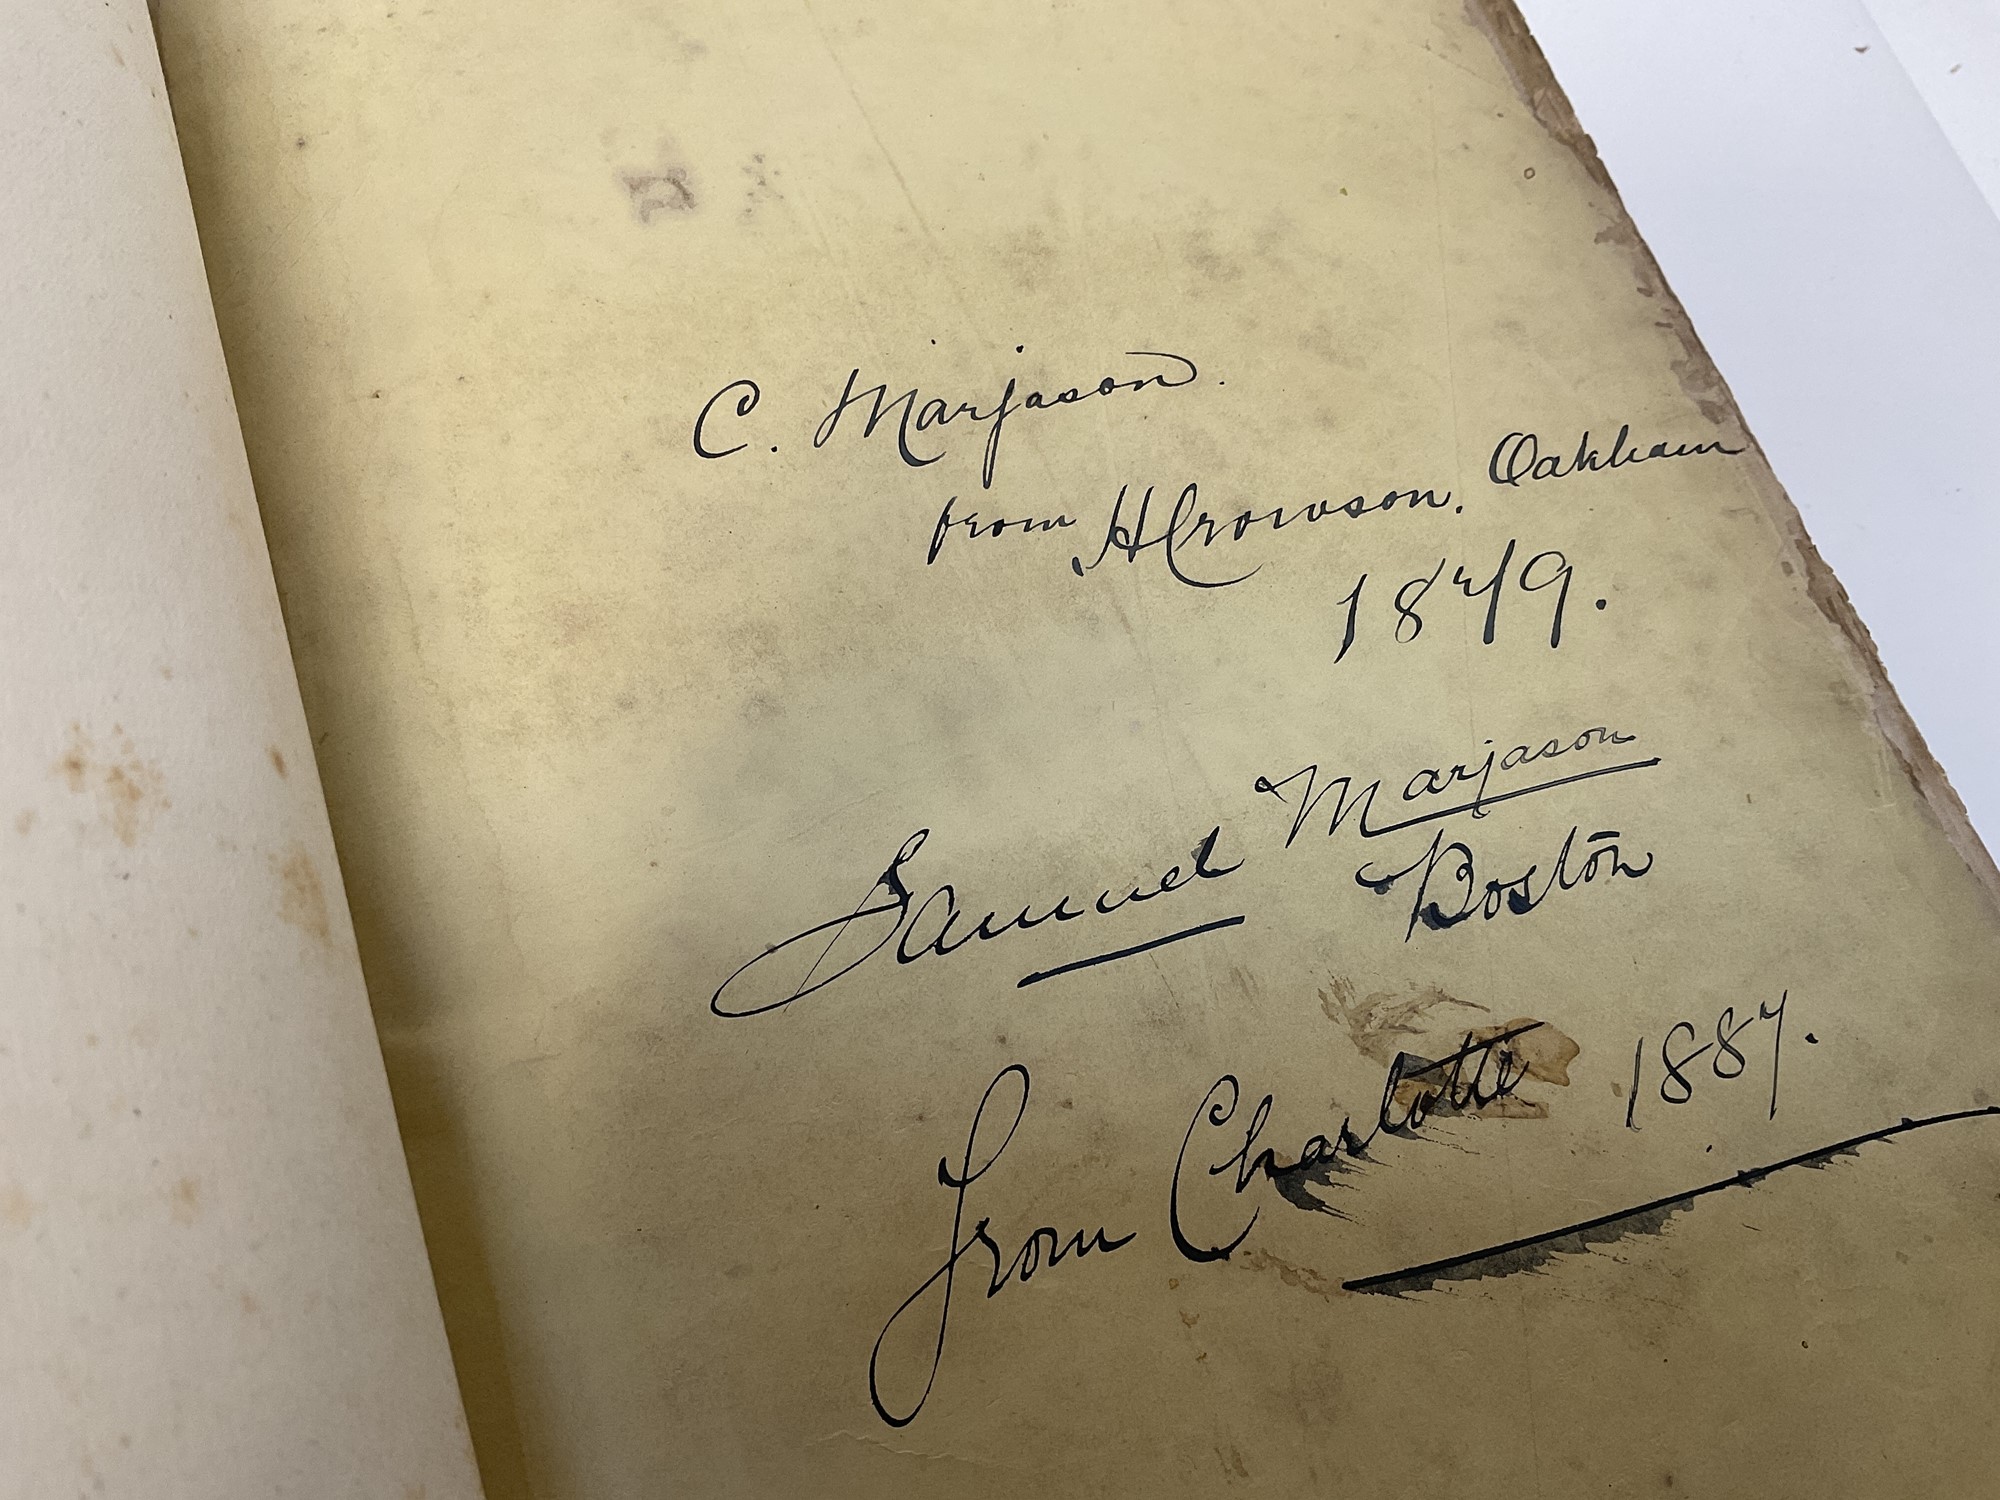 C. Marjason.
from H Crowson. Oakham
1879.
Samuel Marjason
Boston
From Charlotte 1887.